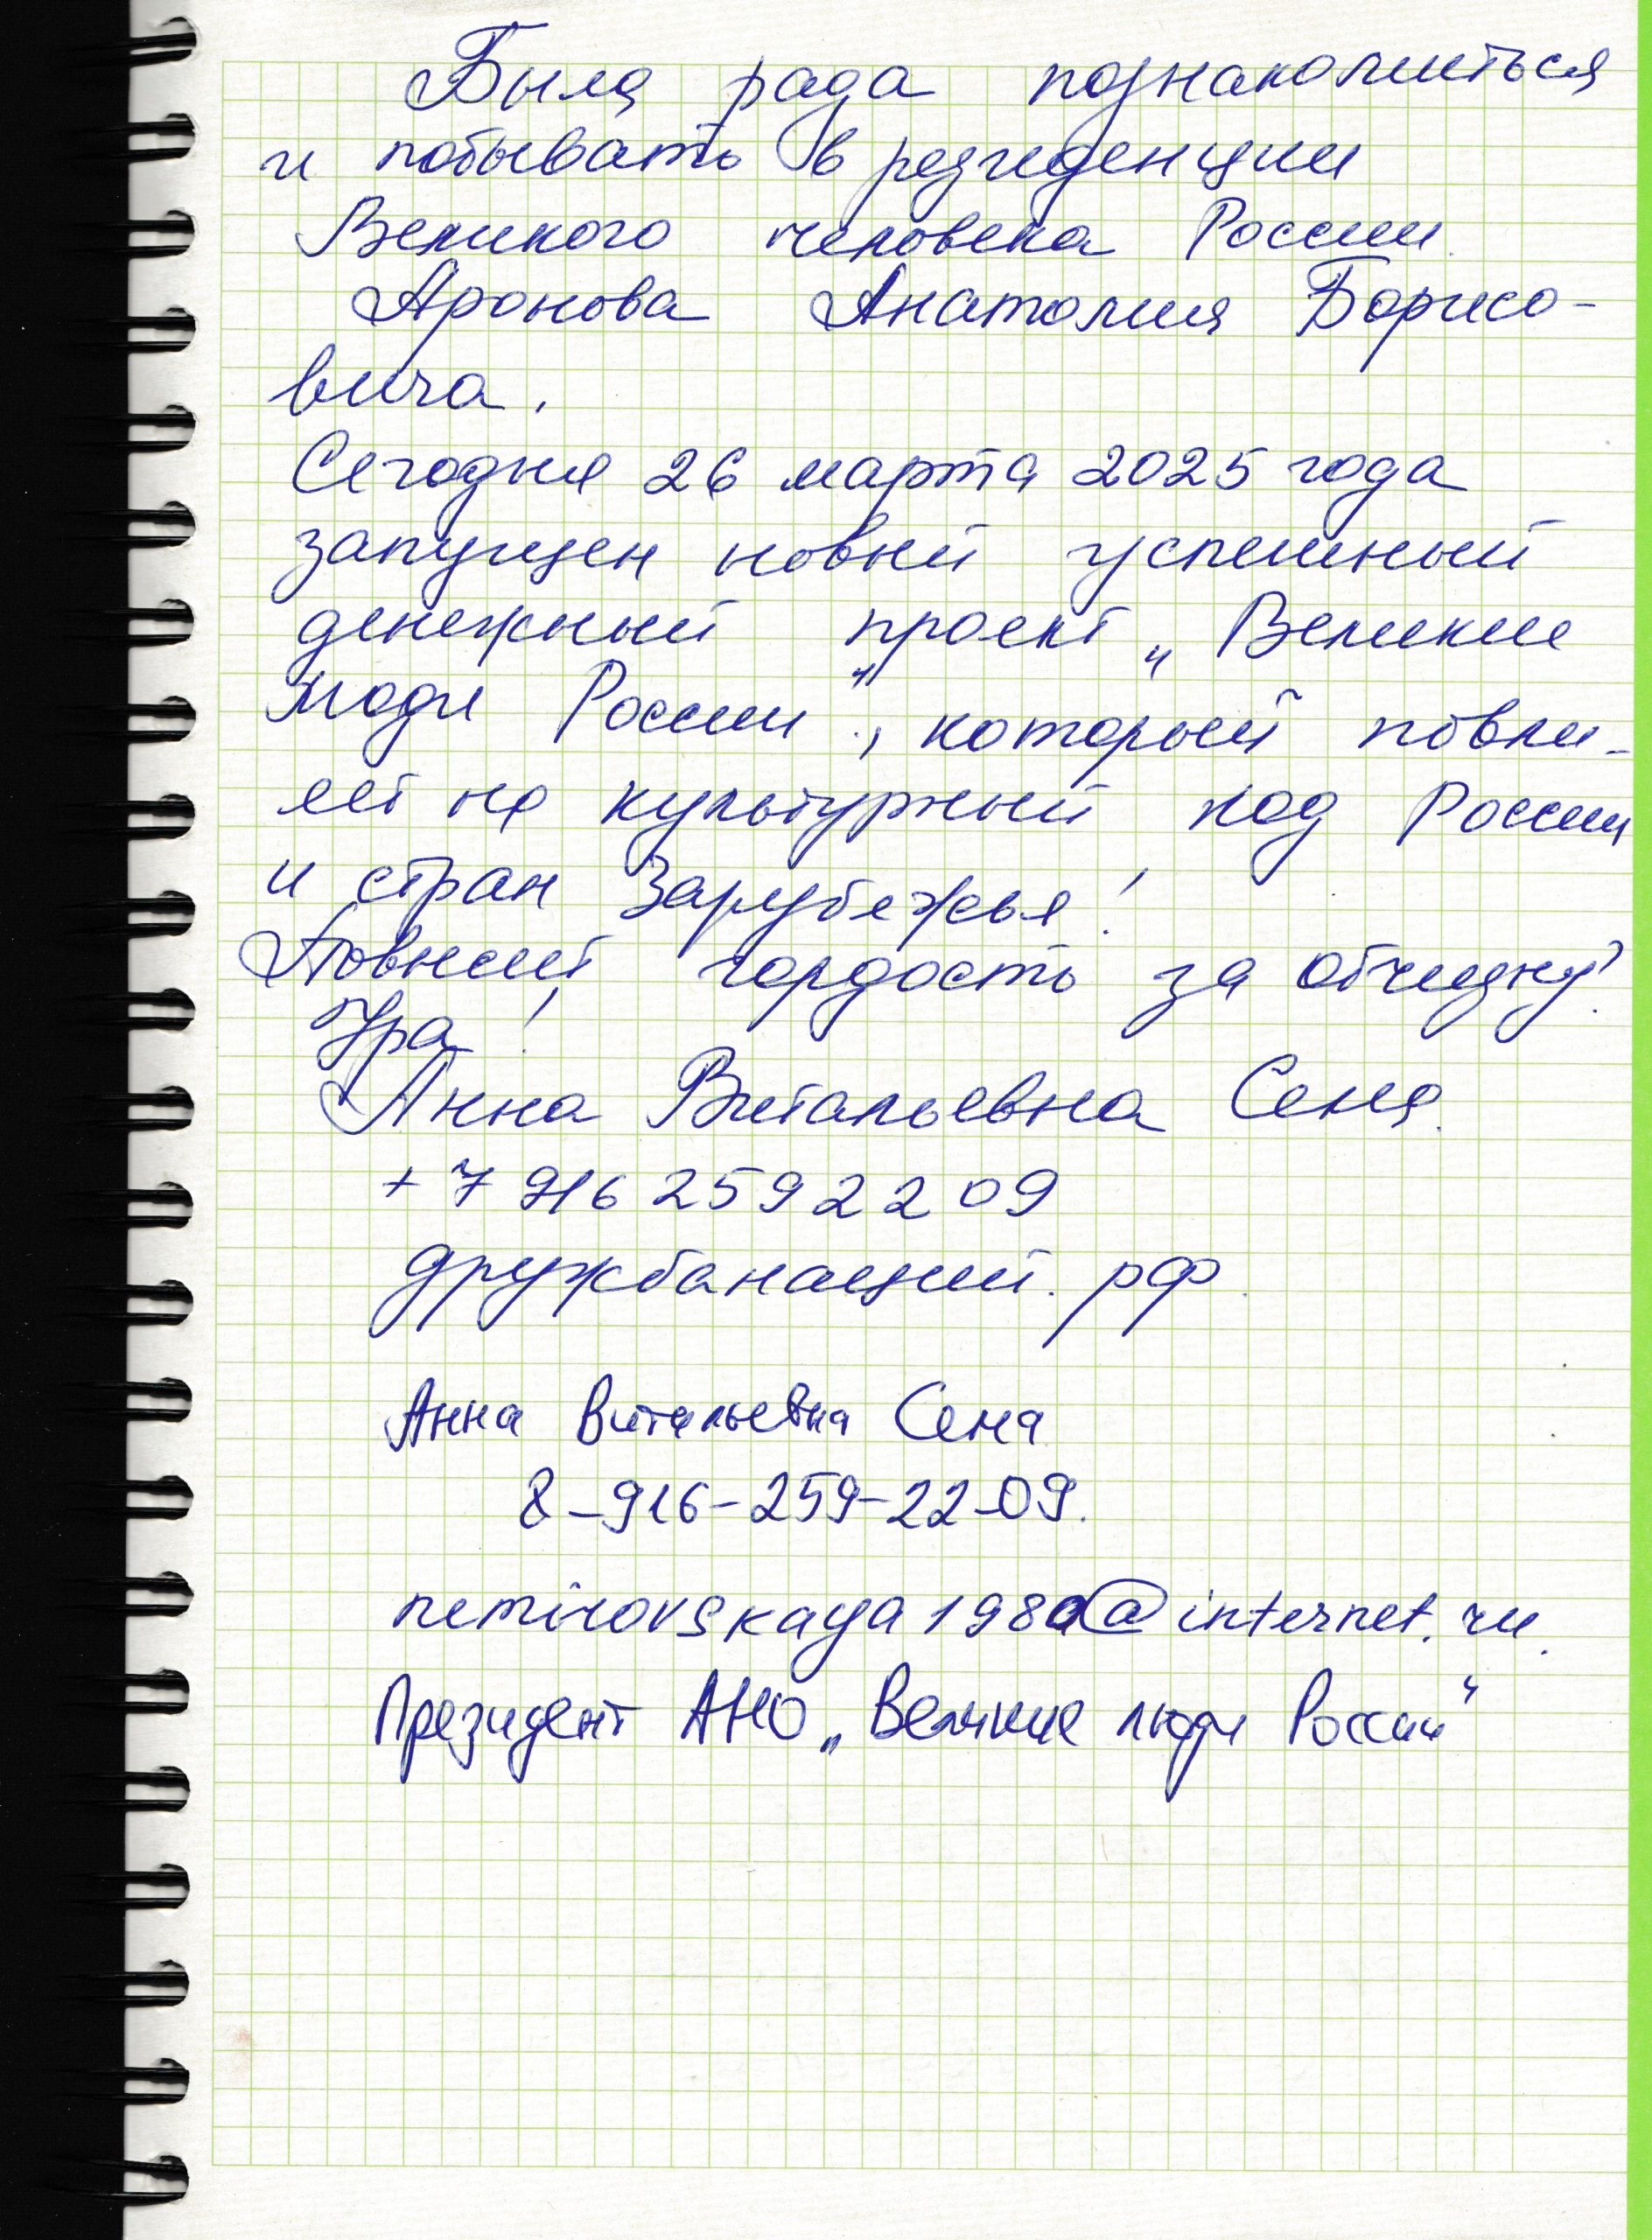 Была рада познакомиться
и побывать в резиденции
Великого человека России
Аронова Анатолия Борисо-
вича.
Сегодня 26 марта 2025 года
запущен новый успешный
денежный проект „Великие
люди России", который повли-
яет на культурный код России
и стран Зарубежья!
Повысит гордость за отчизну!
Ура!
Анна Витальевна Сеня.
+7 916 259 22 09
дружбанаций.рф.
Анна Витальевна Сеня
8-916-259-22-09.
nemirovskaya1980@internet.ru.
Президент АНО „Великие люди России"